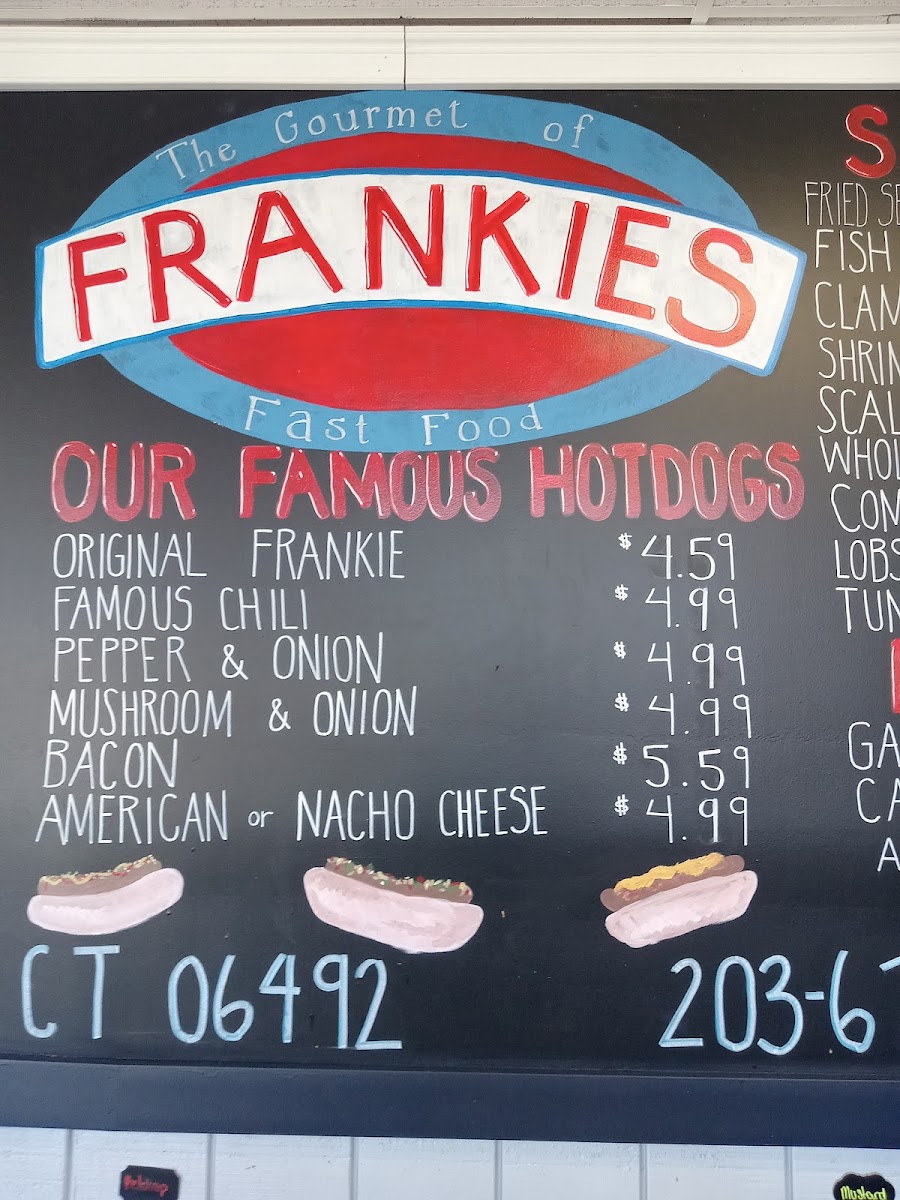 The Gourmet of
FRANKIES
Fast Food
OUR FAMOUS HOTDOGS
ORIGINAL FRANKIE $4.59
FAMOUS CHILI $4.99
PEPPER & ONION $4.99
MUSHROOM & ONION $4.99
BACON $5.59
AMERICAN or NACHO CHEESE $4.99
CT 06492 203-6
S
FRIED SE
FISH
CLAM
SHRIM
SCAL
WHOL
COM
LOBS
TUN
GA
CA
A
Ketchup
Mustard